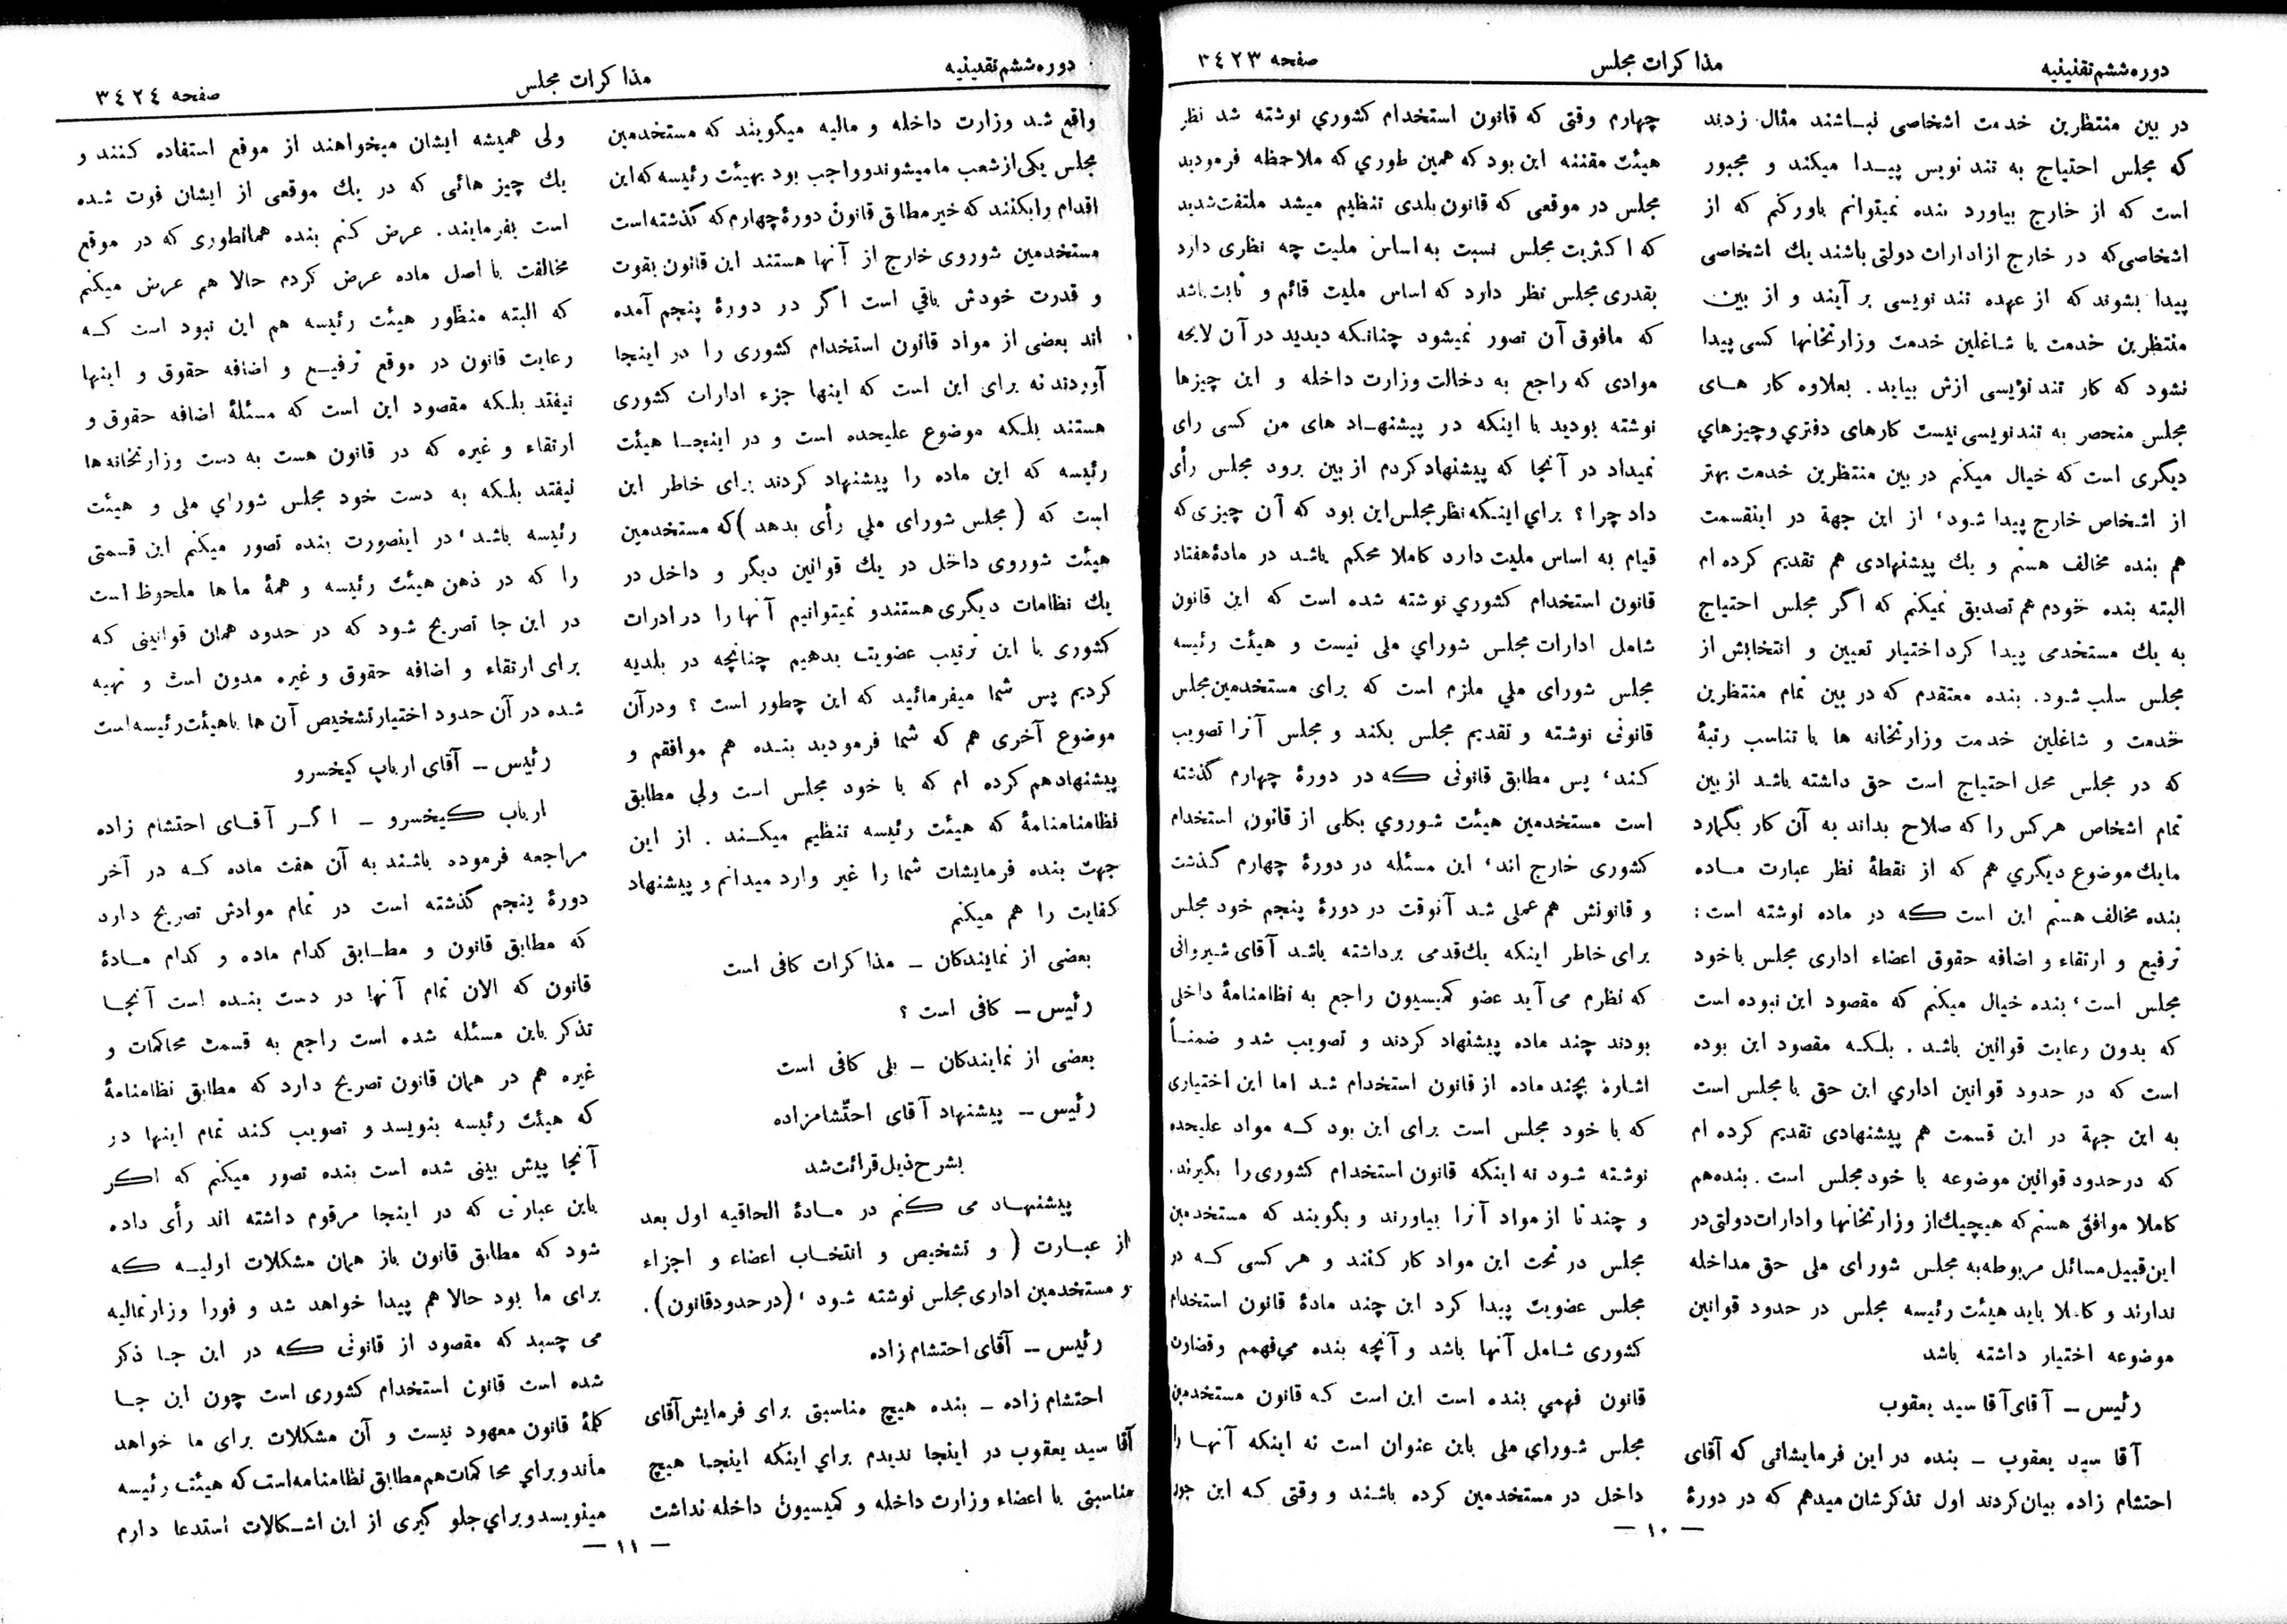 دوره ششم تقنینیه
مذاکرات مجلس
صفحه ۳٤۲۳
در بین منتظرین خدمت اشخاصی نباشند مثال زدند
که مجلس احتیاج به تند نویس پیدا میکند و مجبور
است که از خارج بیاورد بنده نمیتوانم باورکنم که از
اشخاصی که در خارج از ادارات دولتی باشند یك اشخاصی
پیدا بشوند که از عهده تند نویسی بر آیند و از بین
منتظرین خدمت یا شاغلین خدمت وزارتخانها کسی پیدا
نشود که کار تند نویسی ازش بیاید . بعلاوه کار های
مجلس منحصر به تندنویسی نیست کارهای دفتري و چیزهاي
دیگری است که خیال میکنم در بین منتظرین خدمت بهتر
از اشخاص خارج پیدا شود، از این جهة در اینقسمت
هم بنده مخالف هستم و یك پیشنهادی هم تقدیم کرده ام
البته بنده خودم هم تصدیق نمیکنم که اگر مجلس احتیاج
به یك مستخدمی پیدا کرد اختیار تعیین و انتخابش از
مجلس سلب شود. بنده معتقدم که در بین تمام منتظرین
خدمت و شاغلین خدمت وزارتخانه ها با تناسب رتبۀ
که در مجلس محل احتیاج است حق داشته باشد از بین
تمام اشخاص هرکس را که صلاح بداند به آن کار بگمارد
مایك موضوع دیگري هم که از نقطۀ نظر عبارت ماده
بنده مخالف هستم این است که در ماده نوشته است :
ترفیع و ارتقاء و اضافه حقوق اعضاء اداری مجلس باخود
مجلس است، بنده خیال میکنم که مقصود این نبوده است
که بدون رعایت قوانین باشد . بلکه مقصود این بوده
است که در حدود قوانین اداري این حق با مجلس است
به این جهة در این قسمت هم پیشنهادی تقدیم کرده ام
که درحدود قوانین موضوعه با خود مجلس است . بنده هم
کاملا موافق هستم که هیچیك از وزارتخانها و ادارات دولتی در
این قبیل مسائل مربوطه به مجلس شورای ملی حق مداخله
ندارند و کاملا باید هیئت رئیسه مجلس در حدود قوانین
موضوعه اختیار داشته باشد
رئیس ــ آقای آقا سید یعقوب
آقا سید یعقوب ــ بنده در این فرمایشاتی که آقای
احتشام زاده بیان کردند اول تذکرشان میدهم که در دورۀ
چهارم وقتی که قانون استخدام کشوري نوشته شد نظر
هیئت مقننه این بود که همین طوري که ملاحظه فرمودید
مجلس در موقعی که قانون بلدی تنظیم میشد ملتفت شدید
که اکثریت مجلس نسبت به اساس ملیت چه نظری دارد
بقدری مجلس نظر دارد که اساس ملیت قائم و ثابت باشد
که مافوق آن تصور نمیشود چنانکه دیدید در آن لایحه
موادی که راجع به دخالت وزارت داخله و این چیزها
نوشته بودید با اینکه در پیشنهاد های من کسی رای
نمیداد در آنجا که پیشنهاد کردم از بین برود مجلس رأی
داد چرا ؟ براي اینکه نظر مجلس این بود که آن چیزی که
قیام به اساس ملیت دارد کاملا محکم باشد در مادۀ هفتاد
قانون استخدام کشوري نوشته شده است که این قانون
شامل ادارات مجلس شوراي ملی نیست و هیئت رئیسه
مجلس شورای ملي ملزم است که برای مستخدمین مجلس
قانونی نوشته و تقدیم مجلس بکند و مجلس آنرا تصویب
کند، پس مطابق قانونی که در دورۀ چهارم گذشته
است مستخدمین هیئت شوروي بکلی از قانون استخدام
کشوری خارج اند، این مسئله در دورۀ چهارم گذشت
و قانونش هم عملی شد آنوقت در دورۀ پنجم خود مجلس
برای خاطر اینکه یك قدمی برداشته باشد آقای شیروانی
که نظرم می آید عضو کمیسیون راجع به نظامنامۀ داخلی
بودند چند ماده پیشنهاد کردند و تصویب شد و ضمناً
اشارۀ بچند ماده از قانون استخدام شد اما این اختیاری
که با خود مجلس است برای این بود که مواد علیحده
نوشته شود نه اینکه قانون استخدام کشوری را بگیرند.
و چند تا از مواد آنرا بیاورند و بگویند که مستخدمین
مجلس در تحت این مواد کار کنند و هر کسی که در
مجلس عضویت پیدا کرد این چند مادۀ قانون استخدام
کشوری شامل آنها باشد و آنچه بنده می‌فهمم و قضاوت
قانون فهمي بنده است این است که قانون مستخدمین
مجلس شوراي ملی باین عنوان است نه اینکه آنها را
داخل در مستخدمین کرده باشند و وقتی که این جور
ــ ۱۰ ــ
دوره ششم تقنینیه
مذاکرات مجلس
صفحه ۳٤۲٤
واقع شد وزارت داخله و مالیه میگویند که مستخدمین
مجلس یکی از شعب ما میشوند و واجب بود بهیئت رئیسه که این
اقدام را بکنند که خیر مطابق قانون دورۀ چهارم که گذشته است
مستخدمین شوروی خارج از آنها هستند این قانون بقوت
و قدرت خودش باقي است اگر در دورۀ پنجم آمده
اند بعضی از مواد قانون استخدام کشوری را در اینجا
آوردند نه برای این است که اینها جزء ادارات کشوری
هستند بلکه موضوع علیحده است و در اینجا هیئت
رئیسه که این ماده را پیشنهاد کردند برای خاطر این
است که ( مجلس شورای ملي رأی بدهد )که مستخدمین
هیئت شوروی داخل در یك قوانین دیگر و داخل در
یك نظامات دیگری هستند و نمیتوانیم آنها را در ادرات
کشوری با این ترتیب عضویت بدهیم چنانچه در بلدیه
کردیم پس شما میفرمائید که این چطور است ؟ و درآن
موضوع آخری هم که شما فرمودید بنده هم موافقم و
پیشنهاد هم کرده ام که با خود مجلس است ولی مطابق
نظامنامنامۀ که هیئت رئیسه تنظیم میکند . از این
جهت بنده فرمایشات شما را غیر وارد میدانم و پیشنهاد
کفایت را هم میکنم
بعضی از نمایندکان ــ مذاکرات کافی است
رئیس ــ کافی است ؟
بعضی از نمایندکان ــ بلی کافی است
رئیس ــ پیشنهاد آقای احتشامزاده
بشرح ذیل قرائت شد
پیشنهاد می کنم در مادۀ الحاقیه اول بعد
از عبارت ( و تشخیص و انتخاب اعضاء و اجزاء
و مستخدمین اداری مجلس نوشته شود ، (در حدود قانون) .
رئیس ــ آقای احتشام زاده
احتشام زاده ــ بنده هیچ مناسبتی برای فرمایش آقای
آقا سید یعقوب در اینجا ندیدم براي اینکه اینجا هیچ
مناسبتی با اعضاء وزارت داخله و کمیسیون داخله نداشت
ولی همیشه ایشان میخواهند از موقع استفاده کنند و
یك چیز هائی که در یك موقعی از ایشان فوت شده
است بفرمایند . عرض کنم بنده همانطوری که در موقع
مخالفت با اصل ماده عرض کردم حالا هم عرض میکنم
که البته منظور هیئت رئیسه هم این نبود است که
رعایت قانون در موقع ترفیع و اضافه حقوق و اینها
نیفتد بلکه مقصود این است که مسئلۀ اضافه حقوق و
ارتقاء و غیره که در قانون هست به دست وزارتخانه ها
نیفتد بلکه به دست خود مجلس شوراي ملی و هیئت
رئیسه باشد، در اینصورت بنده تصور میکنم این قسمتی
را که در ذهن هیئت رئیسه و همۀ ماها ملحوظ است
در این جا تصریح شود که در حدود همان قوانینی که
برای ارتقاء و اضافه حقوق و غیره مدون است و تهیه
شده در آن حدود اختیار تشخیص آن ها باهیئت رئیسه است
رئیس ــ آقای ارباب کیخسرو
ارباب کیخسرو ــ اگر آقای احتشام زاده
مراجعه فرموده باشند به آن هفت ماده که در آخر
دورۀ پنجم گذشته است در تمام موادش تصریح دارد
که مطابق قانون و مطابق کدام ماده و کدام مادۀ
قانون که الان تمام آنها در دست بنده است آنجا
تذکر باین مسئله شده است راجع به قسمت محاکمات و
غیره هم در همان قانون تصریح دارد که مطابق نظامنامۀ
که هیئت رئیسه بنویسد و تصویب کند تمام اینها در
آنجا پیش بینی شده است بنده تصور میکنم که اکر
باین عبارت که در اینجا مرقوم داشته اند رأی داده
شود که مطابق قانون باز همان مشکلات اولیه که
برای ما بود حالا هم پیدا خواهد شد و فورا وزارتمالیه
می چسبد که مقصود از قانونی که در این جا ذکر
شده است قانون استخدام کشوری است چون این جا
کلمۀ قانون معهود نیست و آن مشکلات برای ما خواهد
ماند و براي محاکمات هم مطابق نظامنامه است که هیئت رئیسه
مینویسد و براي جلو گیری از این اشکالات استدعا دارم
ــ ۱۱ ــ